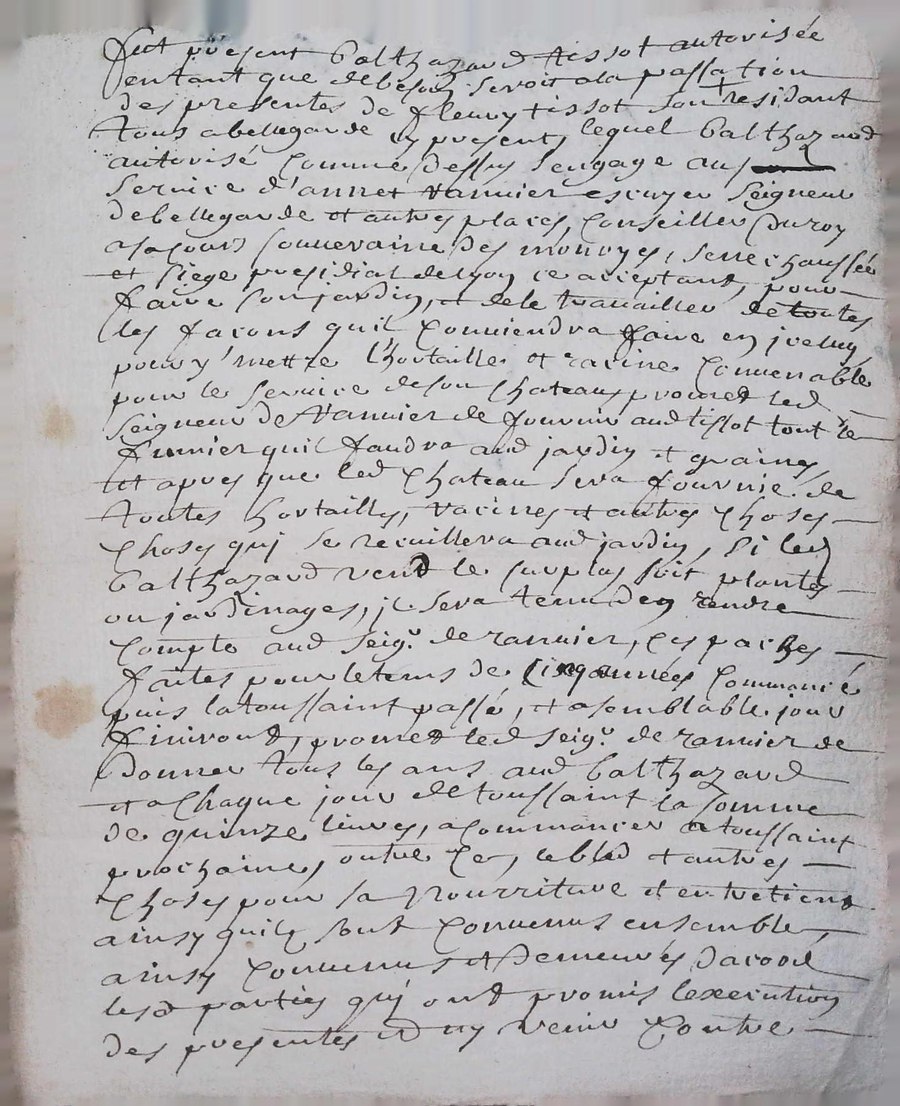 fut present Balthazard tissot autorisée
entant que debesoin seroit ala passation
des presentes de fleury tissot son residant
tous abellegarde cy present, lequel Balthazard
autorisé comme dessus sengage au
service d'annet rannier escuyer seigneur
debellegarde et autres places, Conseiller duroy
asacour souveraine des monoyes, senechaussée
et siege presidial delyon ce acceptant, pour
faire son jardin, et dele travailler de toutes
les facons quil conviendra faire en jceluy
pour y mettre l'hortailles et racine convenable
pour le service deson chateau promet led
seigneur de rannier de fournir aud tissot tout le
fumier quil faudra aud jardin et graines,
et apres que led chateau sera fournie de
toutes hortailles, racines et autres choses
choses qui se recuillera aud jardin, si led
Balthazard vend le surplus soit plantes
ou jardinages, jl sera tenu den rendre
compte aud seigr. de rannier, ces paches
faites pour letems de cinq années commancé
puis latoussaint passé, et asemblable jour
finiront, promet led seigr. de rannier de
donner tous les ans aud balthazard
et a chaque jour de toussaint la somme
de quinze livres, acommancer a toussaint
prochaine, outre ce, lebled et autres
choses pour sa nourriture et entretiens
ainsy quilz sont convenus ensemble,
ainsy convenus et demeurés dacord
lesd parties qui ont promis lexecution
des presentes et ny venir contre